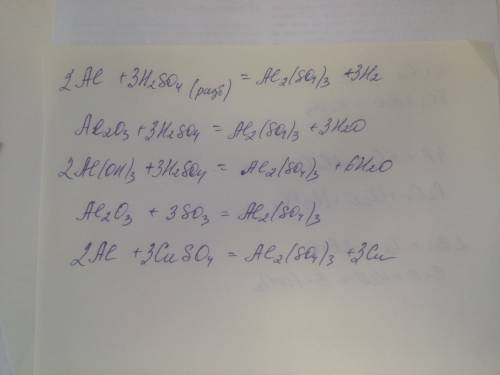 2Al + 3H₂SO₄ (разб) = Al₂(SO₄)₃ + 3H₂
Al₂O₃ + 3H₂SO₄ = Al₂(SO₄)₃ + 3H₂O
2Al(OH)₃ + 3H₂SO₄ = Al₂(SO₄)₃ + 6H₂O
Al₂O₃ + 3SO₃ = Al₂(SO₄)₃
2Al + 3CuSO₄ = Al₂(SO₄)₃ + 3Cu